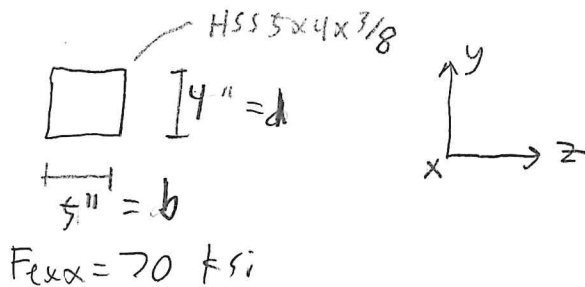 HSS 5x4x3/8
4" = d
y
x
z
5" = b
Fexx = 70 ksi